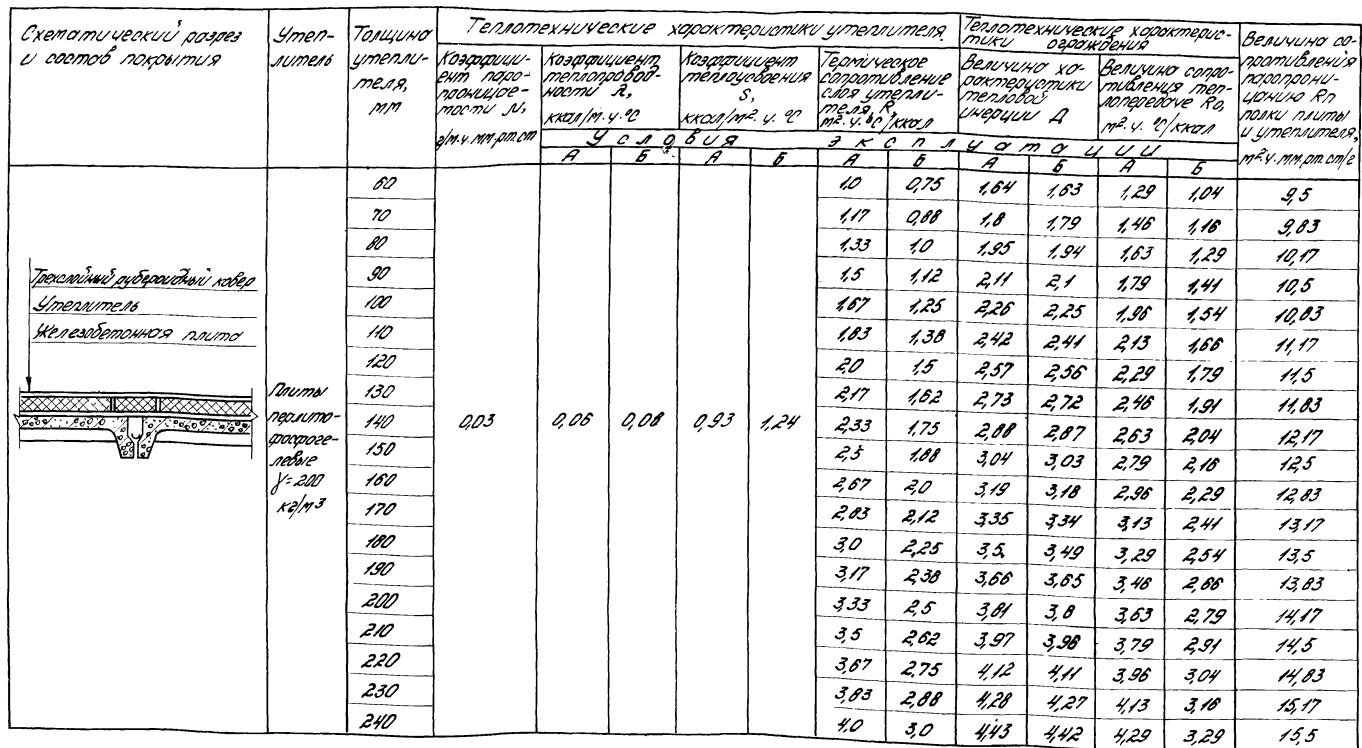 Схематический разрез
и состав покрытия
Утеп-
литель
Толщина
утепли-
теля,
мм
Теплотехнические характеристики утеплителя
Коэффици-
ент паро-
проницае-
мости μ,
г/м.ч.мм.рт.ст
Коэффициент
теплопровод-
ности λ,
ккал/м.ч.°С
Коэффициент
теплоусвоения
S,
ккал/м². ч. °С
Термическое
сопротивление
слоя утепли-
теля, R,
м².ч.°С/ккал
Теплотехнические характерис-
тики ограждения
Величина ха-
рактеристики
тепловой
инерции Д
Величина сопро-
тивления теп-
лопередаче Rо,
м².ч. °С/ккал
Величина со-
противления
паропрони-
цанию Rп
полки плиты
и утеплителя,
м².ч.мм.рт.ст/г
Условия эксплуатации
А Б А Б А Б А Б А Б
Трехслойный рубероидный ковер
Утеплитель
Железобетонная плита
Плиты
перлито-
фосфоге-
левые
γ=200
кг/м³
0,03 0,06 0,08 0,93 1,24
60 1,0 0,75 1,64 1,63 1,29 1,04 9,5
70 1,17 0,88 1,8 1,79 1,46 1,16 9,83
80 1,33 1,0 1,95 1,94 1,63 1,29 10,17
90 1,5 1,12 2,11 2,1 1,79 1,41 10,5
100 1,67 1,25 2,26 2,25 1,96 1,54 10,83
110 1,83 1,38 2,42 2,41 2,13 1,66 11,17
120 2,0 1,5 2,57 2,56 2,29 1,79 11,5
130 2,17 1,62 2,73 2,72 2,46 1,91 11,83
140 2,33 1,75 2,88 2,87 2,63 2,04 12,17
150 2,5 1,88 3,04 3,03 2,79 2,16 12,5
160 2,67 2,0 3,19 3,18 2,96 2,29 12,83
170 2,83 2,12 3,35 3,34 3,13 2,41 13,17
180 3,0 2,25 3,5 3,49 3,29 2,54 13,5
190 3,17 2,38 3,66 3,65 3,46 2,66 13,83
200 3,33 2,5 3,81 3,8 3,63 2,79 14,17
210 3,5 2,62 3,97 3,96 3,79 2,91 14,5
220 3,67 2,75 4,12 4,11 3,96 3,04 14,83
230 3,83 2,88 4,28 4,27 4,13 3,16 15,17
240 4,0 3,0 4,43 4,42 4,29 3,29 15,5